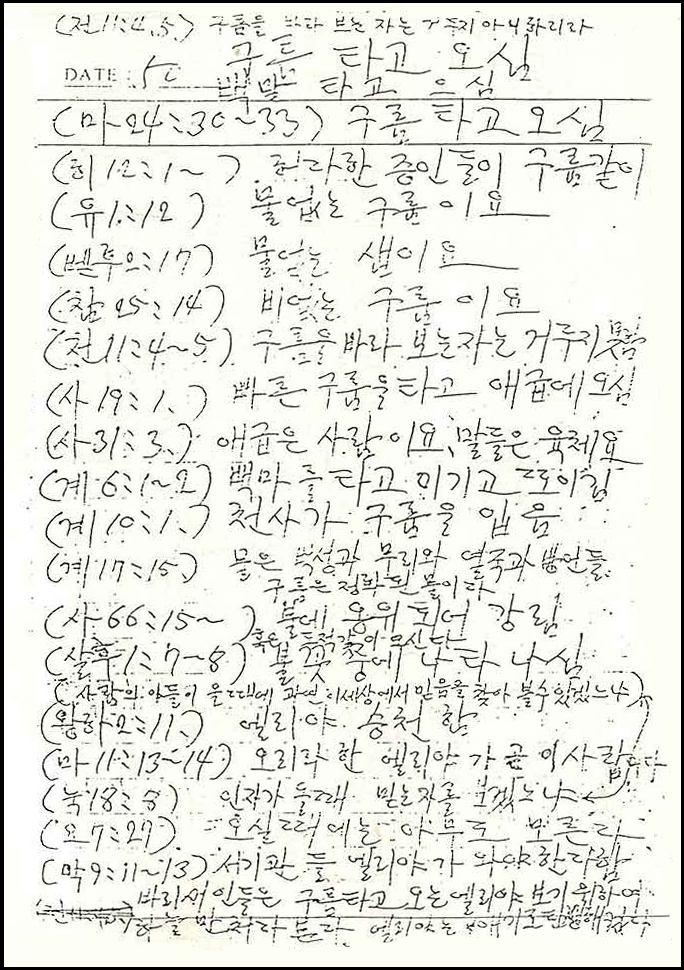 (전11:4.5.) 구름을 바라 보는 자는 거두지 아니하리라
구름 타고 오심
DATE: 50
백말 타고 오심
(마24:30~33) 구름 타고 오심
(히12:1~ ) 허다한 증인들이 구름같이
(유1:12) 물없는 구름이요
(벧후2:17) 물없는 샘이요
(잠25:14) 비없는 구름이요
(전11:4~5) 구름을 바라 보는자는 거두지 못함
(사19:1.) 빠른 구름을 타고 애굽에 오심
(사31:3.) 애굽은 사람이요, 말들은 육체요
(계6:1~2) 백마를 타고 이기고 또 이김
(계10:1.) 천사가 구름을 입음
(계17:15.) 물은 백성과 무리와 열국과 방언들
구름은 정화된 물이다
(사66:15~ ) 불에 옹위되어 강림
혹은 도적같이 오신다
(살후1:7~8) 불꽃 중에 나타나심
(사람의 아들이 올때에 과연 이세상에서 믿음을 찾아 볼수 있겠느냐)
(왕하2:11.) 엘리야 승천 함
(마11:13~14) 오리라 한 엘리야가 곧 이사람이다
(눅18:8) 인자가 올때 믿는자를 보겠느냐
(요7:27) 오실때에는 아무도 모른다
(막9:11~13) 서기관들 엘리야가 와야 한다함
바리새인들은 구름타고 오는 엘리야 보기 위하여
하늘만 쳐다 본다. 엘리야는